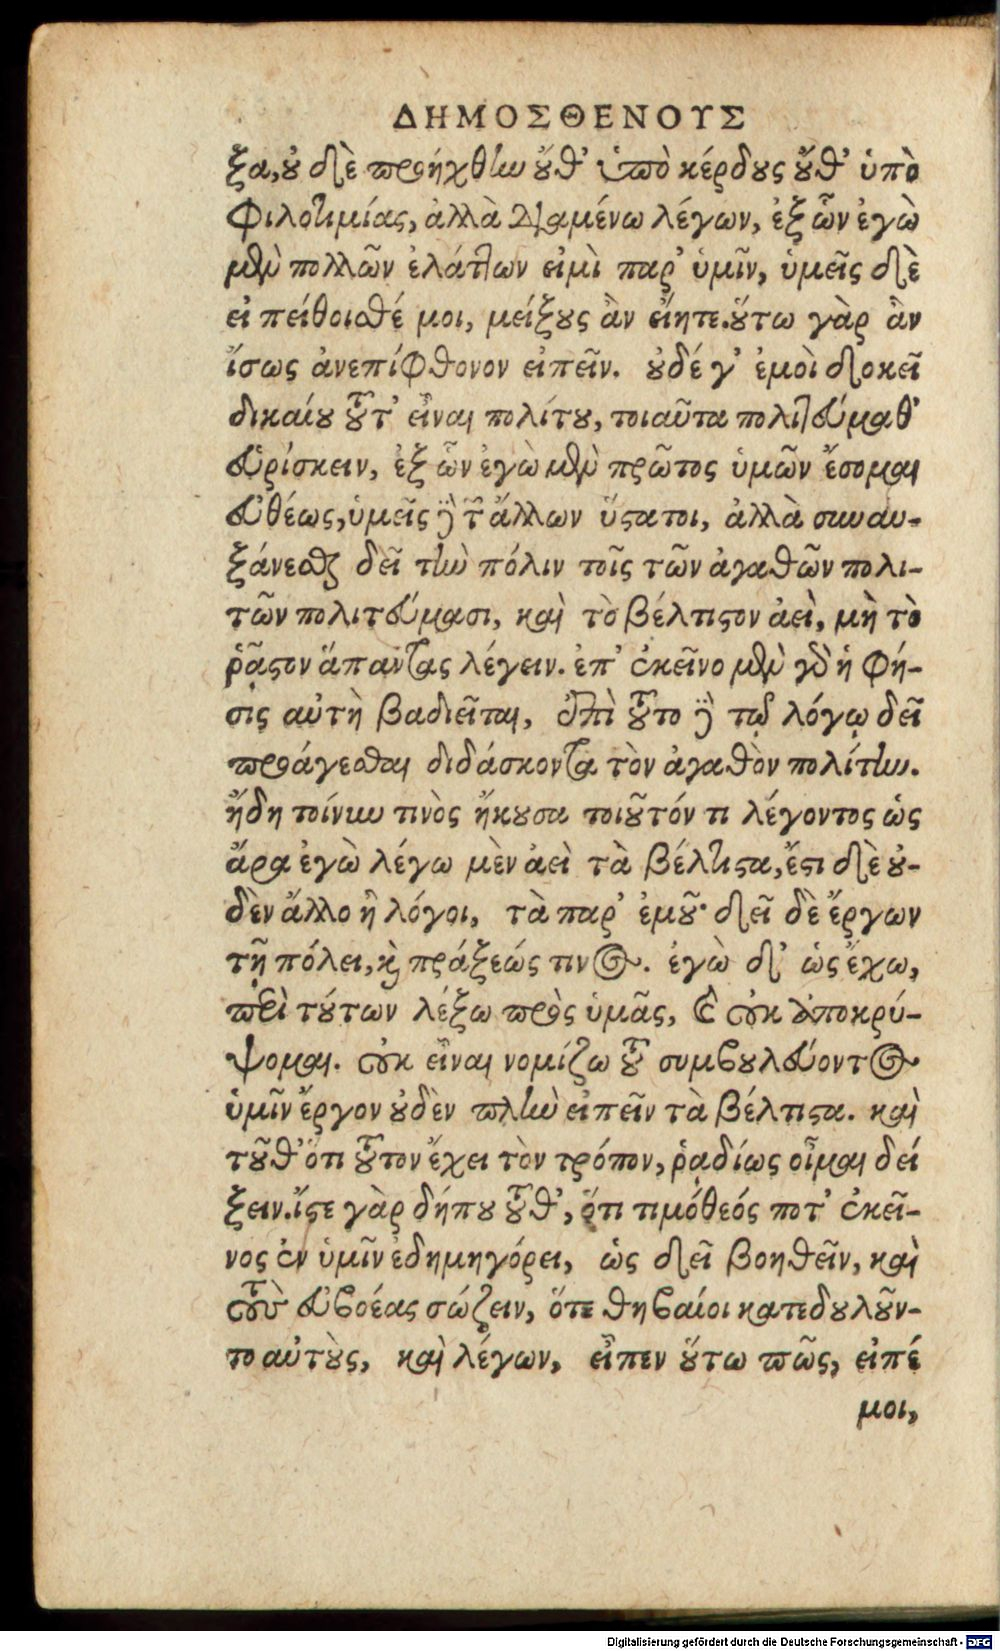 ΔΗΜΟΣΘΕΝΟΥΣ
ξα, οὐ δὲ προήχθην οὔθ' ὑπὸ κέρδους οὔθ' ὑπὸ
φιλοτιμίας, ἀλλὰ διαμένω λέγων, ἐξ ὧν ἐγὼ
μὲν πολλῶν ἐλάττων εἰμὶ παρ' ὑμῖν, ὑμεῖς δὲ
εἰ πείθοισθέ μοι, μείζους ἂν εἴητε. οὕτω γὰρ ἂν
ἴσως ἀνεπίφθονον εἰπεῖν. οὐδέ γ' ἐμοὶ δοκεῖ
δικαίου τοῦτ' εἶναι πολίτου, τοιαῦτα πολιτεύμαθ'
εὑρίσκειν, ἐξ ὧν ἐγὼ μὲν πρῶτος ὑμῶν ἔσομαι
εὐθέως, ὑμεῖς δὲ τῶν ἄλλων ὕστατοι, ἀλλὰ συναυ-
ξάνεσθαι δεῖ τὴν πόλιν τοῖς τῶν ἀγαθῶν πολι-
τῶν πολιτεύμασι, καὶ τὸ βέλτιστον ἀεὶ, μὴ τὸ
ῥᾷστον ἅπαντας λέγειν. ἐπ' ἐκεῖνο μὲν γὰρ ἡ φή-
σις αὐτὴ βαδιεῖται, ἐπὶ τοῦτο δὲ τῷ λόγῳ δεῖ
προάγεσθαι διδάσκοντα τὸν ἀγαθὸν πολίτην.
ἤδη τοίνυν τινὸς ἤκουσα τοιοῦτόν τι λέγοντος ὡς
ἄρα ἐγὼ λέγω μὲν ἀεὶ τὰ βέλτιστα, ἔστι δὲ οὐ-
δὲν ἄλλο ἢ λόγοι, τὰ παρ' ἐμοῦ· δεῖ δὲ ἔργων
τῇ πόλει, καὶ πράξεώς τινος. ἐγὼ δ' ὡς ἔχω,
περὶ τούτων λέξω πρὸς ὑμᾶς, καὶ οὐκ ἀποκρύ-
ψομαι. οὐκ εἶναι νομίζω τοῦ συμβουλεύοντος
ὑμῖν ἔργον οὐδὲν πλὴν εἰπεῖν τὰ βέλτιστα. καὶ
τοῦθ' ὅτι τοῦτον ἔχει τὸν τρόπον, ῥᾳδίως οἶμαι δεί
ξειν. ἴστε γὰρ δήπου τοῦθ', ὅτι τιμόθεός ποτ' ἐκεῖ-
νος ἐν ὑμῖν ἐδημηγόρει, ὡς δεῖ βοηθεῖν, καὶ
τοὺς εὐβοέας σώζειν, ὅτε θηβαίοι κατεδουλοῦν-
το αὐτοὺς, καὶ λέγων, εἶπεν οὕτω πῶς, εἰπέ
μοι,
Digitalisierung gefördert durch die Deutsche Forschungsgemeinschaft - DFG